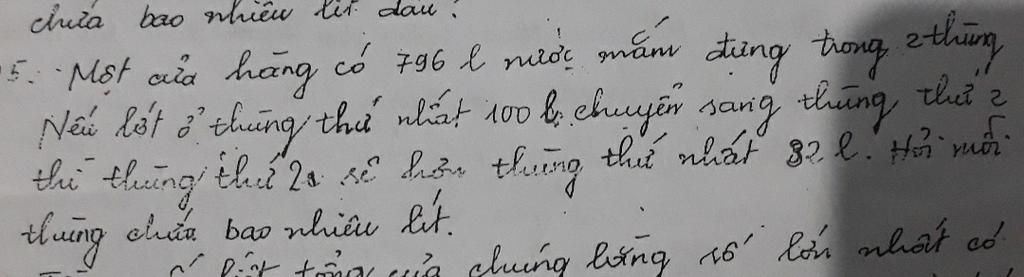 chứa bao nhiêu lít dầu?
5. Một cửa hàng có 796 l nước mắm đựng trong 2 thùng
Nếu bớt ở thùng thứ nhất 100 l chuyển sang thùng thứ 2
thì thùng thứ 2 sẽ hơn thùng thứ nhất 32 l. Hỏi mỗi
thùng chứa bao nhiêu lít.
tổng của chúng bằng số lớn nhất có